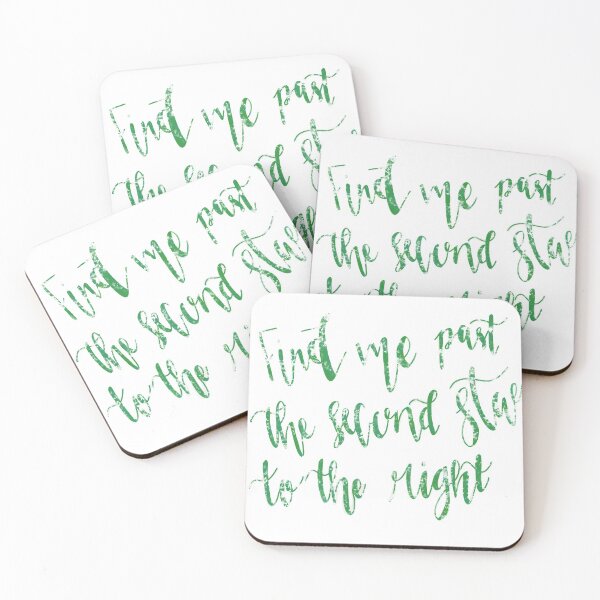 Find me past
the second st
Find me past
the second star
to the right
Find me past
the second star
to the ri
Find me past
the second star
to the right